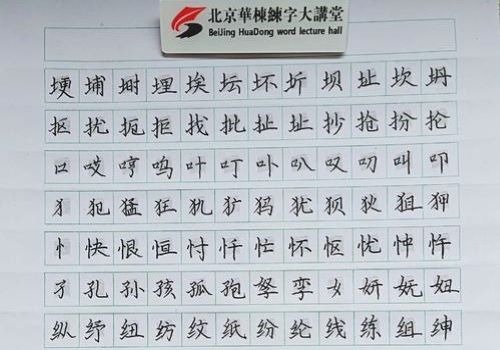 北京華棟練字大講堂
BeiJing HuaDong word lecture hall
埂埔埘埋埃坛坏圻坝址坎坍
抠扰扼拒找批扯址抄抢扮抡
口哎哼呜叶叮卟叭叹叨叫叩
犭犯猛狂犰犷犸犹狈狄狙狎
忄快恨恒忖忏忙怀怄忧忡忤
孑孔孙孩孤孢孥孪女妍妩妞
纵纾纽纺纹纸纷纶线练组绅